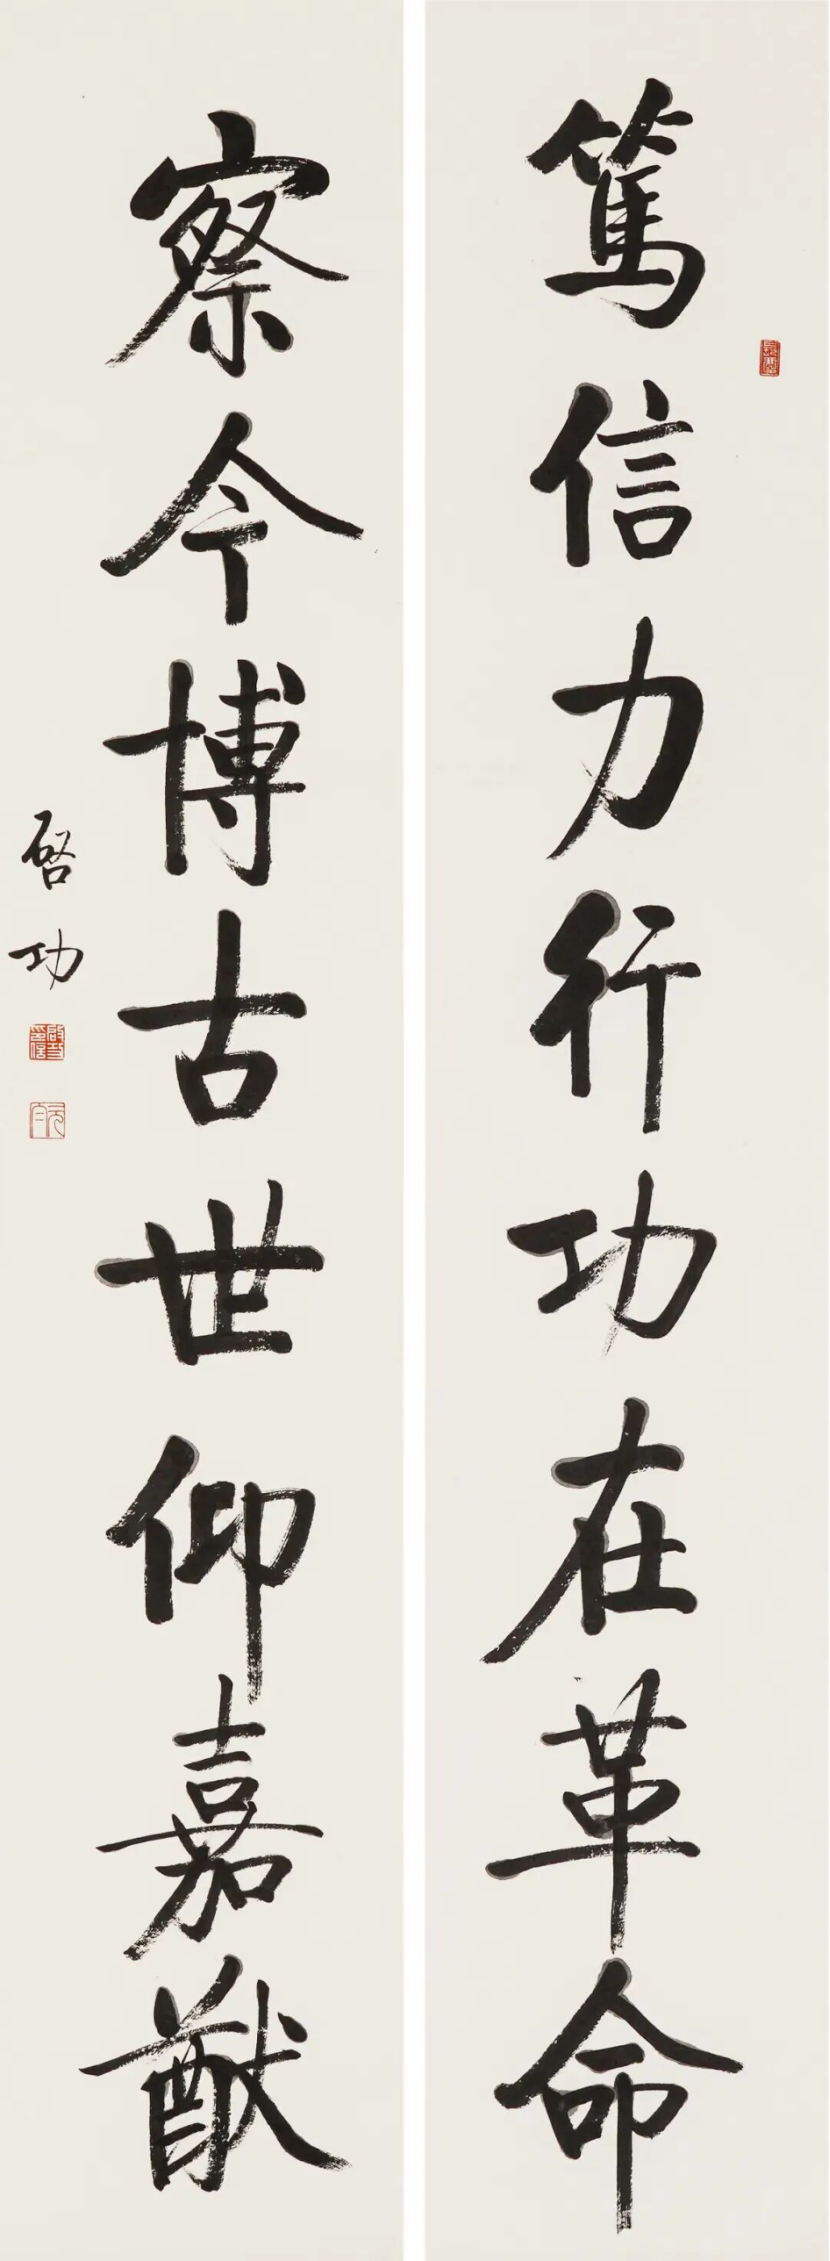 篤信力行功在革命
察今博古世仰嘉猷
啓功